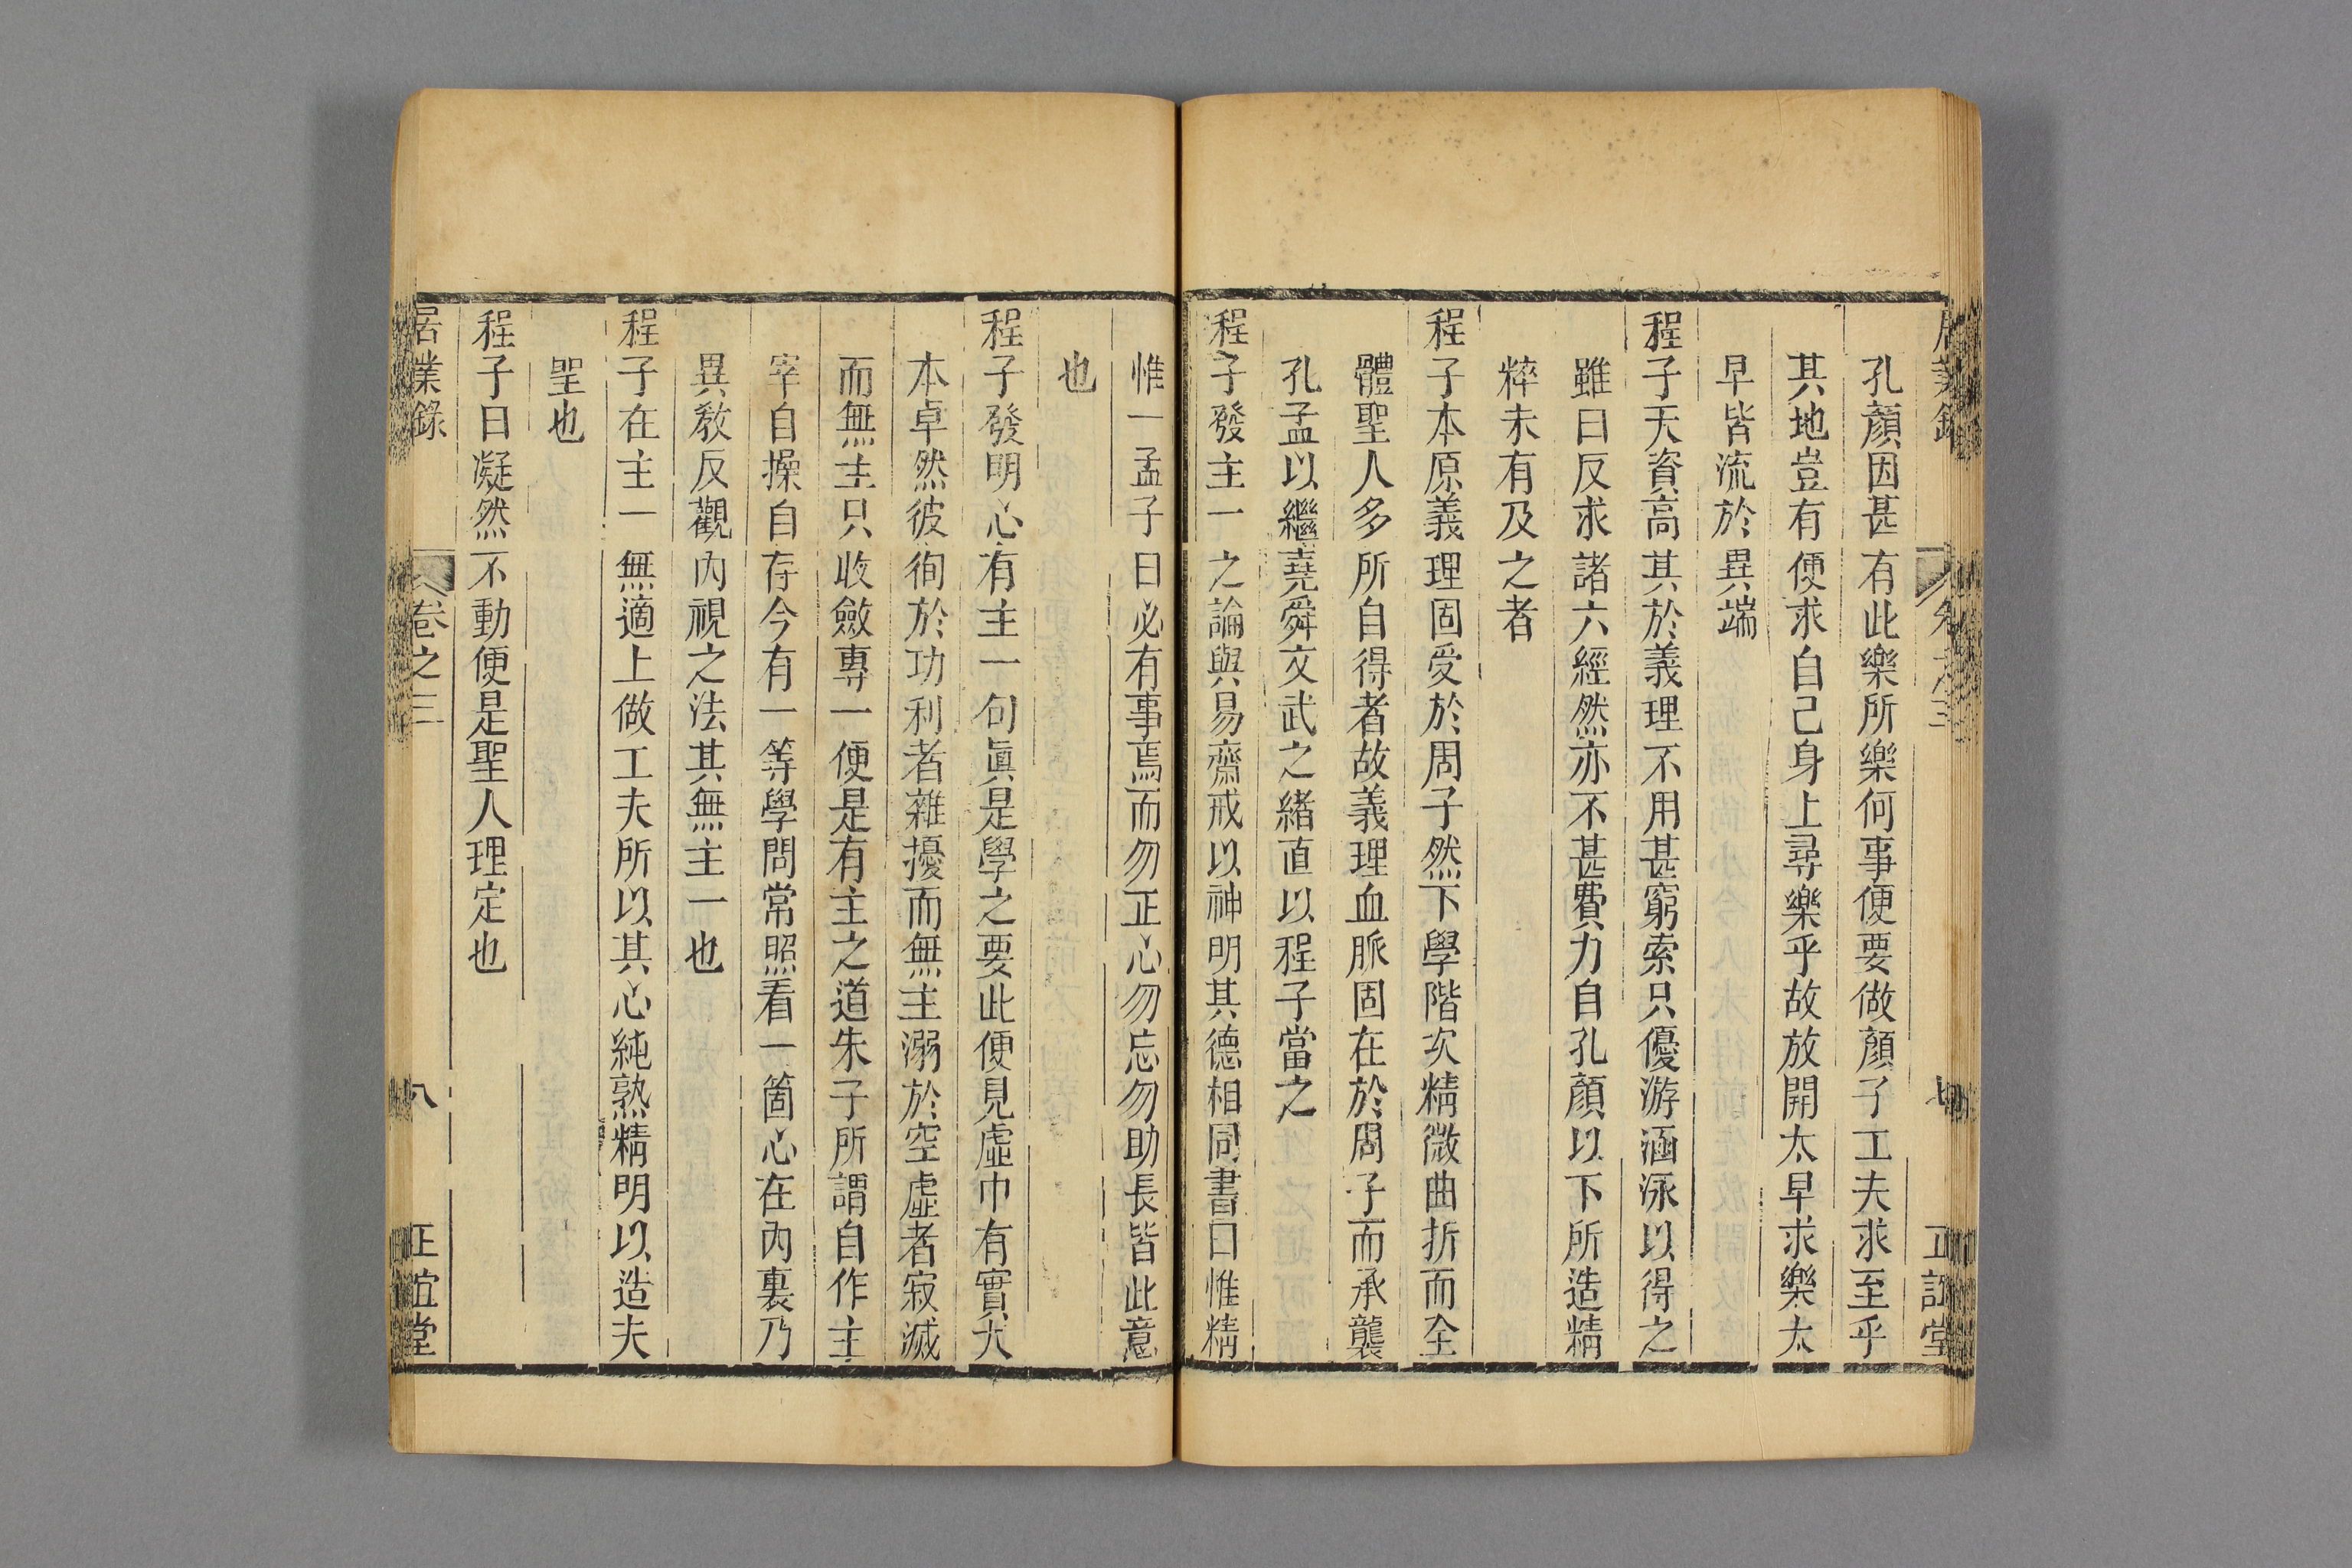 居業錄 卷之三 七 正誼堂
孔顏因甚有此樂所樂何事便要做顏子工夫求至乎
其地豈有便求自己身上尋樂乎故放開太早求樂太
早皆流於異端
程子天資高其於義理不用甚窮索只優游涵泳以得之
雖曰反求諸六經然亦不甚費力自孔顏以下所造精
粹未有及之者
程子本原義理固受於周子然下學階次精微曲折而全
體聖人多所自得者故義理血脈固在於周子而承襲
孔孟以繼堯舜文武之緒直以程子當之
程子發主一之論與易齋戒以神明其德相同書曰惟精
惟一孟子曰必有事焉而勿正心勿忘勿助長皆此意
也
程子發明心有主一句眞是學之要此便見虛中有實大
本卓然彼徇於功利者雜擾而無主溺於空虛者寂滅
而無主只收斂專一便是有主之道朱子所謂自作主
宰自操自存今有一等學問常照看一箇心在內裏乃
異教反觀內視之法其無主一也
程子在主一無適上做工夫所以其心純熟精明以造夫
聖也
程子曰凝然不動便是聖人理定也
居業錄 卷之三 八 正誼堂